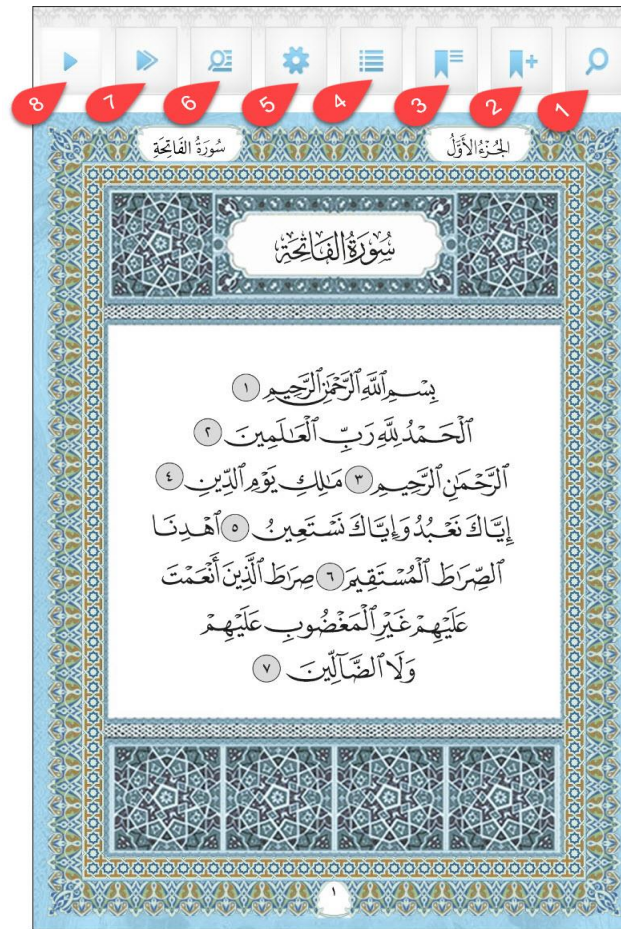 8 7 6 5 4 3 2 1
الجُزْءُ الأَوَّلُ
سُورَةُ الفَاتِحَةِ
سُورَةُ الْفَاتِحَةِ
بِسْمِ ٱللَّهِ ٱلرَّحْمَٰنِ ٱلرَّحِيمِ ١
ٱلْحَمْدُ لِلَّهِ رَبِّ ٱلْعَٰلَمِينَ ٢
ٱلرَّحْمَٰنِ ٱلرَّحِيمِ ٣ مَٰلِكِ يَوْمِ ٱلدِّينِ ٤
إِيَّاكَ نَعْبُدُ وَإِيَّاكَ نَسْتَعِينُ ٥ ٱهْدِنَا
ٱلصِّرَٰطَ ٱلْمُسْتَقِيمَ ٦ صِرَٰطَ ٱلَّذِينَ أَنْعَمْتَ
عَلَيْهِمْ غَيْرِ ٱلْمَغْضُوبِ عَلَيْهِمْ
وَلَا ٱلضَّآلِّينَ ٧
١